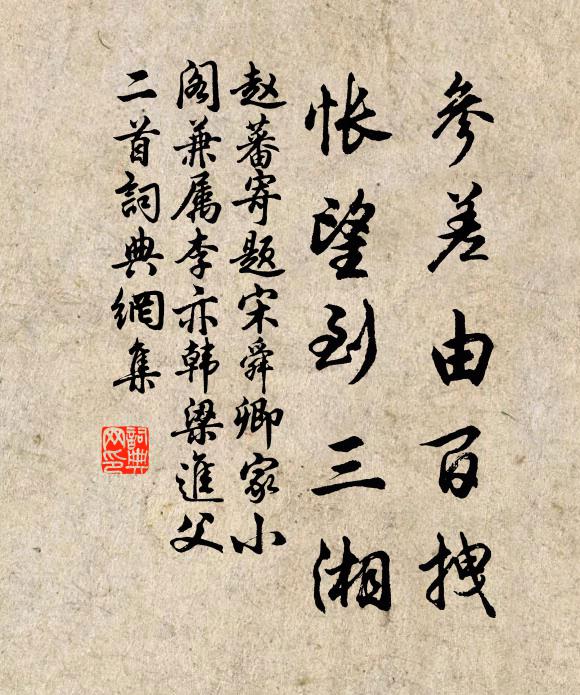 參差由百拽
悵望到三湘
赵蕃寄題宋舜卿家小
阁兼属李亦韩梁進父
二首詞典網集
詞典网印